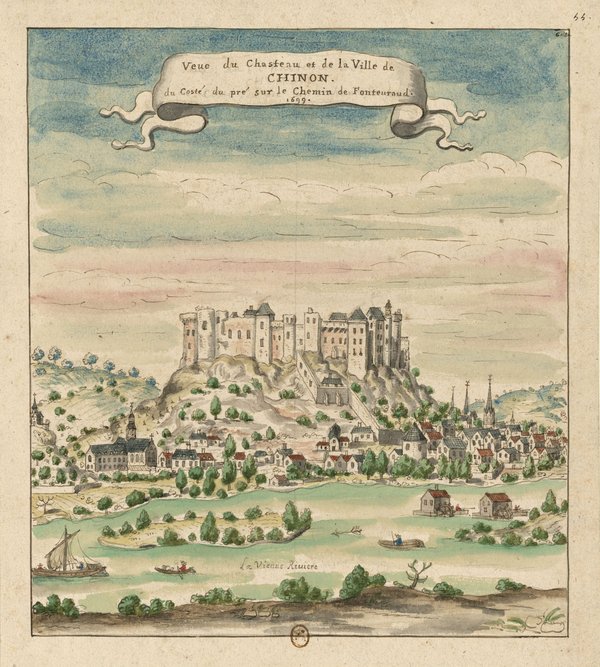 44.
Veue du Chasteau et de la Ville de
CHINON.
du Costé du pré sur le Chemin de Fonteuraud.
1699.
La Vienne Riuiere